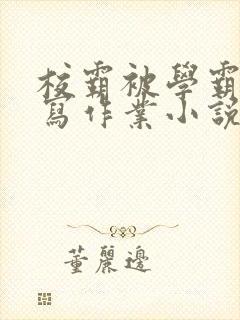 校霸被學霸
寫作業小說
董麗邊